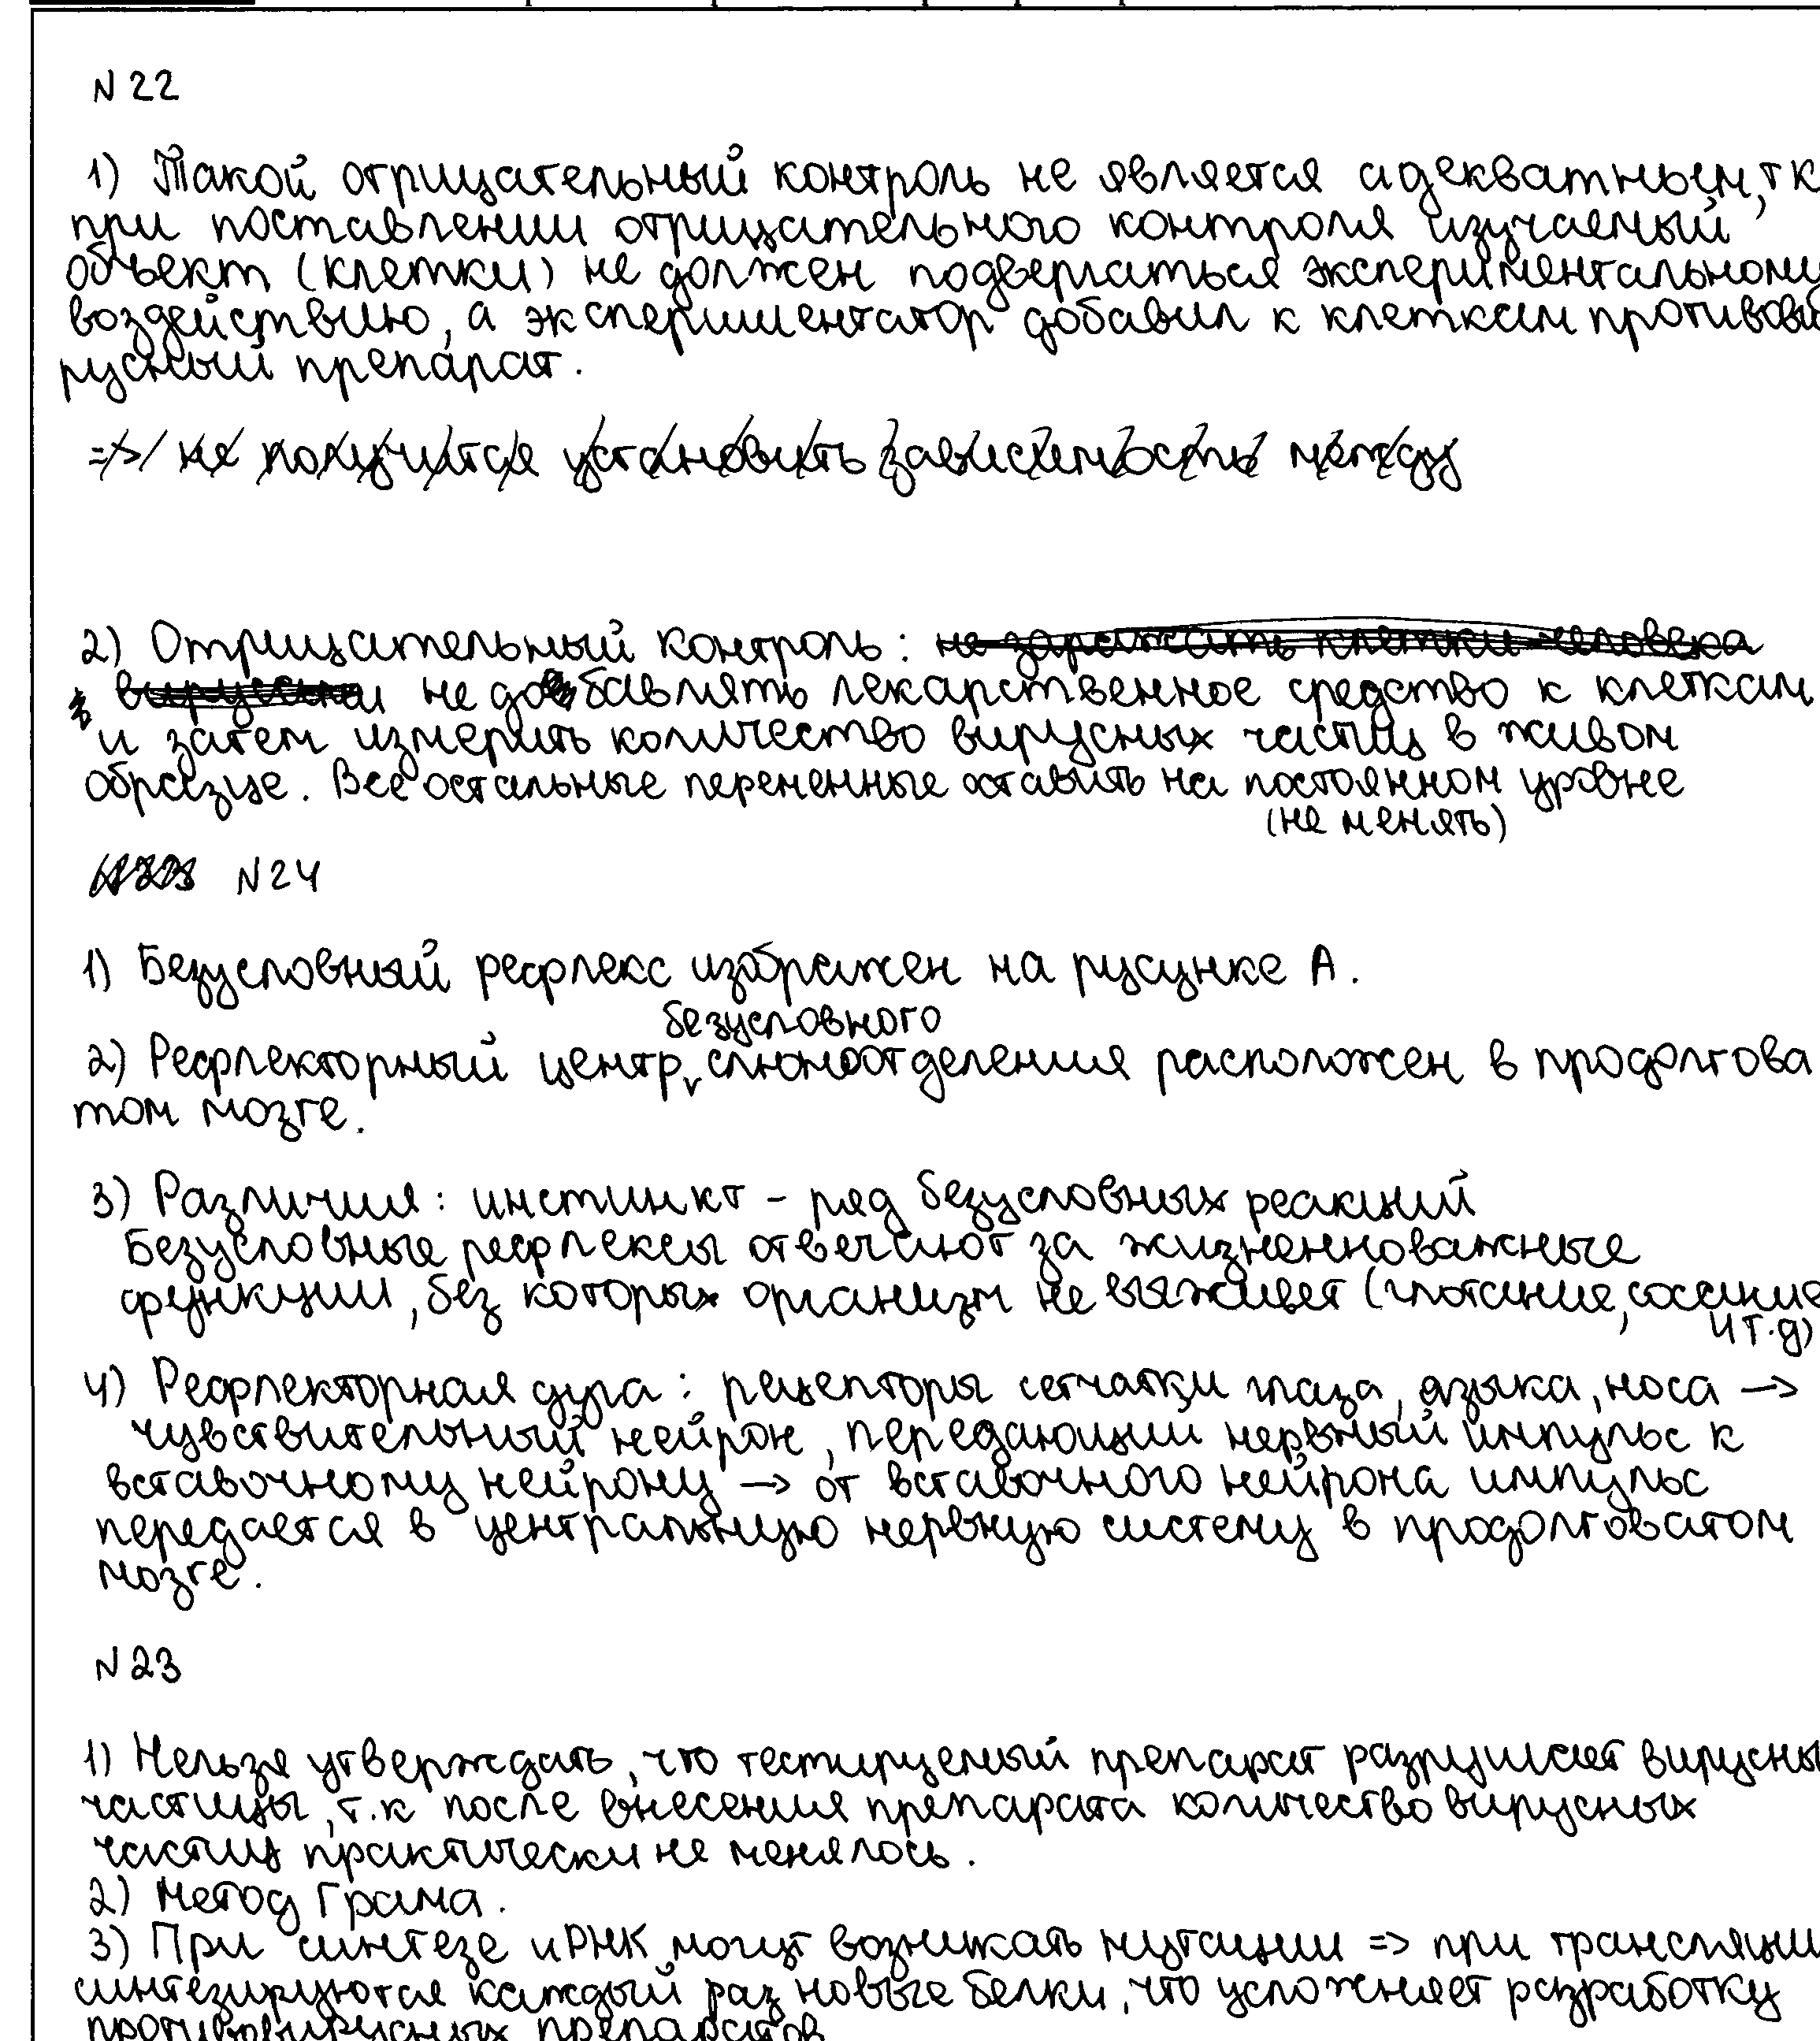 N 22
1) Такой отрицательный контроль не является адекватным, т к
при поставлении отрицательного контроля изучаемый
объект (клетки) не должен подвергаться экспериментальному
воздействию, а экспериментатор добавил к клеткам противови
русный препарат.
=> не получится установить зависимость между
2) Отрицательный контроль: не заражать клетки человека
вирусом и не добавлять лекарственное средство к клеткам
и затем измерить количество вирусных частиц в живом
образце. Все остальные переменные оставить на постоянном уровне
(не менять)
N 23 N 24
1) Безусловный рефлекс изображен на русунке А.
безусловного
2) Рефлекторный центр слюноотделения расположен в продолгова
том мозге.
3) Различия: инстинкт - ряд безусловных реакций
Безусловные рефлексы отвечают за жизненноважные
функции, без которых организм не выживет (глотание, сосание
и т.д)
4) Рефлекторная дуга: рецепторы сетчатки глаза, языка, носа →
чувствительный нейрон, передающий нервный импульс к
вставочному нейрону → от вставочного нейрона импульс
передается в центральную нервную систему в продолговатом
мозге.
N 23
1) Нельзя утверждать, что тестируемый препарат разрушает вирусны
частицы, т.к после внесения препарата количество вирусных
частиц практически не менялось.
2) Метод Грама.
3) При синтезе иРНК могут возникать мутации => при трансляции
синтезируются каждый раз новые белки, что усложняет разработку
противовирусных препаратов